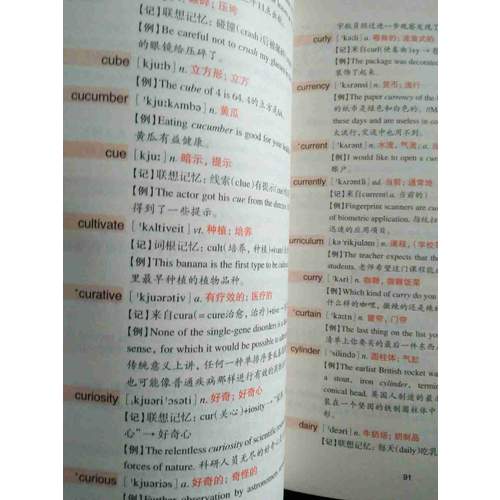 碎；压垮
【记】联想记忆：碰撞(crash)后被
【例】Be careful not to crush my glasses
的眼镜给压碎了。
cube
[kjuːb] n. 立方形；立方
【例】The cube of 4 is 64. 4的立方是
cucumber
[ˈkjuːkʌmbə] n. 黄瓜
【例】Eating cucumber is good for your
黄瓜有益健康。
cue
[kjuː] n. 暗示，提示
【记】联想记忆：线索(clue)有提示(cue
【例】The actor got his cue from the director
得到了一些提示。
cultivate
[ˈkʌltiveit] vt. 种植；培养
【记】词根记忆：cult(培养，种植)+
【例】This banana is the first type to be
里最早种植的植物品种。
*curative
[ˈkjuərətiv] a. 有疗效的；医疗的
【记】来自cura(=cure治愈，治疗)+tive
【例】None of the single-gene disorders is a
sense, for which it would be possible to
传统意义上讲，任何一种单排序紊乱
也可能像普通疾病那样进行有效的
curiosity
[ˌkjuəriˈɔsəti] n. 好奇；好奇心
【记】联想记忆：cur(关心)+iosity→
心”→好奇心
【例】The relentless curiosity of scientific
forces of nature. 科研人员无尽的好奇心
*curious
[ˈkjuəriəs] a. 好奇的；奇怪的
【例】Further observation by astronomers
学校员经过进一步观察发现了
curly
[ˈkəːli] a. 卷曲的；波浪式的
【记】来自curl(使卷曲)+y
【例】The package was decorated
装饰了起来。
currency
[ˈkʌrənsi] n. 货币；流行
【例】The paper currency of the
的纸币是绿色和白色的。//Ma
these days and are useless in
太流行，交道中也用不到。
*current
[ˈkʌrənt] n. 水流，气流；a.
【例】I would like to open a
账户。
currently
[ˈkʌrəntli] ad. 当前；通常地
【记】来自current(a. 当前的)
【例】Fingerprint scanners are
of biometric application.
迅速的应用项目。
urriculum
[kəˈrikjuləm] n. 课程，(学校等
【例】The teacher expects that the
students. 老师希望这门课程能
curry
[ˈkʌri] n. 咖喱，咖喱饭菜
【例】Which kind of curry do you
什么样的咖喱，微辣的还是
*curtain
[ˈkəːtn] n. 窗帘，门帘
【例】The last thing on the list you
清单上你要买的最后一件东西
cylinder
[ˈsilində] n. 圆柱体；气缸
【例】The earliest British rocket
a stout, iron cylinder, termin
conical head. 英国人制造的最
装在一个坚固的铁制圆柱体中
形。
dairy
[ˈdeəri] n. 牛奶场；奶制品
【记】联想记忆：每天(daily)吃乳
91